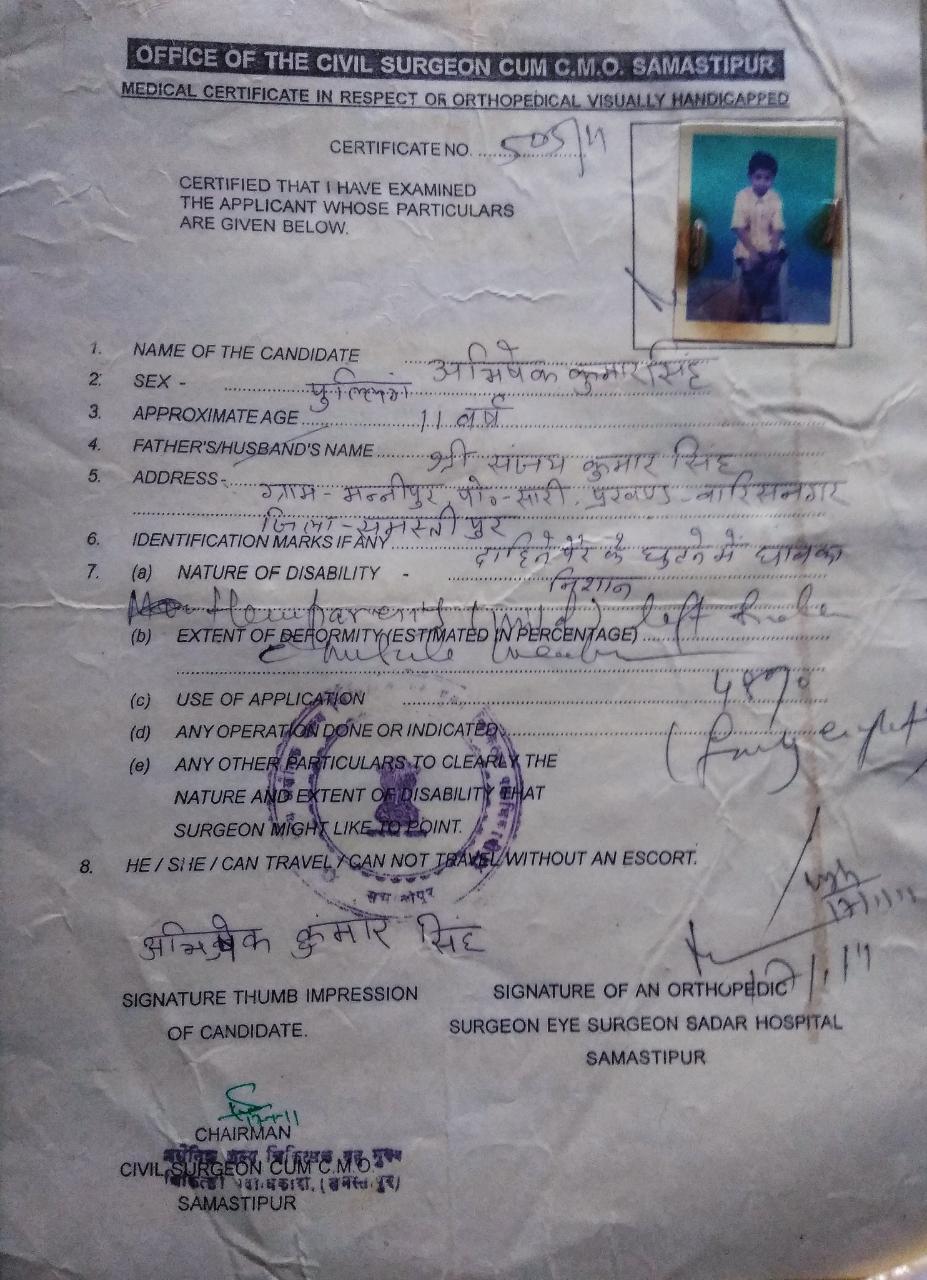 OFFICE OF THE CIVIL SURGEON CUM C.M.O. SAMASTIPUR
MEDICAL CERTIFICATE IN RESPECT OR ORTHOPEDICAL VISUALLY HANDICAPPED
CERTIFICATE NO. 505/11
CERTIFIED THAT I HAVE EXAMINED
THE APPLICANT WHOSE PARTICULARS
ARE GIVEN BELOW.
1. NAME OF THE CANDIDATE अभिषेक कुमार सिंह
2. SEX - पुल्लिंग
3. APPROXIMATE AGE 11 वर्ष
4. FATHER'S/HUSBAND'S NAME श्री संजय कुमार सिंह
5. ADDRESS - ग्राम - मन्नीपुर, पो०-सारी, प्रखण्ड - वारिसनगर
जिला - समस्तीपुर
6. IDENTIFICATION MARKS IF ANY दाहिने पैर के घुटने में घाव का
निशान
7. (a) NATURE OF DISABILITY -
(mild) left
(b) EXTENT OF DEFORMITY (ESTIMATED IN PERCENTAGE)
(c) USE OF APPLICATION
(d) ANY OPERATION DONE OR INDICATED
(e) ANY OTHER PARTICULARS TO CLEARLY THE
NATURE AND EXTENT OF DISABILITY THAT
SURGEON MIGHT LIKE TO POINT.
8. HE / SHE / CAN TRAVEL / CAN NOT TRAVEL WITHOUT AN ESCORT.
अभिषेक कुमार सिंह
SIGNATURE THUMB IMPRESSION
OF CANDIDATE.
SIGNATURE OF AN ORTHOPEDIC
SURGEON EYE SURGEON SADAR HOSPITAL
SAMASTIPUR
CHAIRMAN
CIVIL SURGEON CUM C.M.O.
SAMASTIPUR